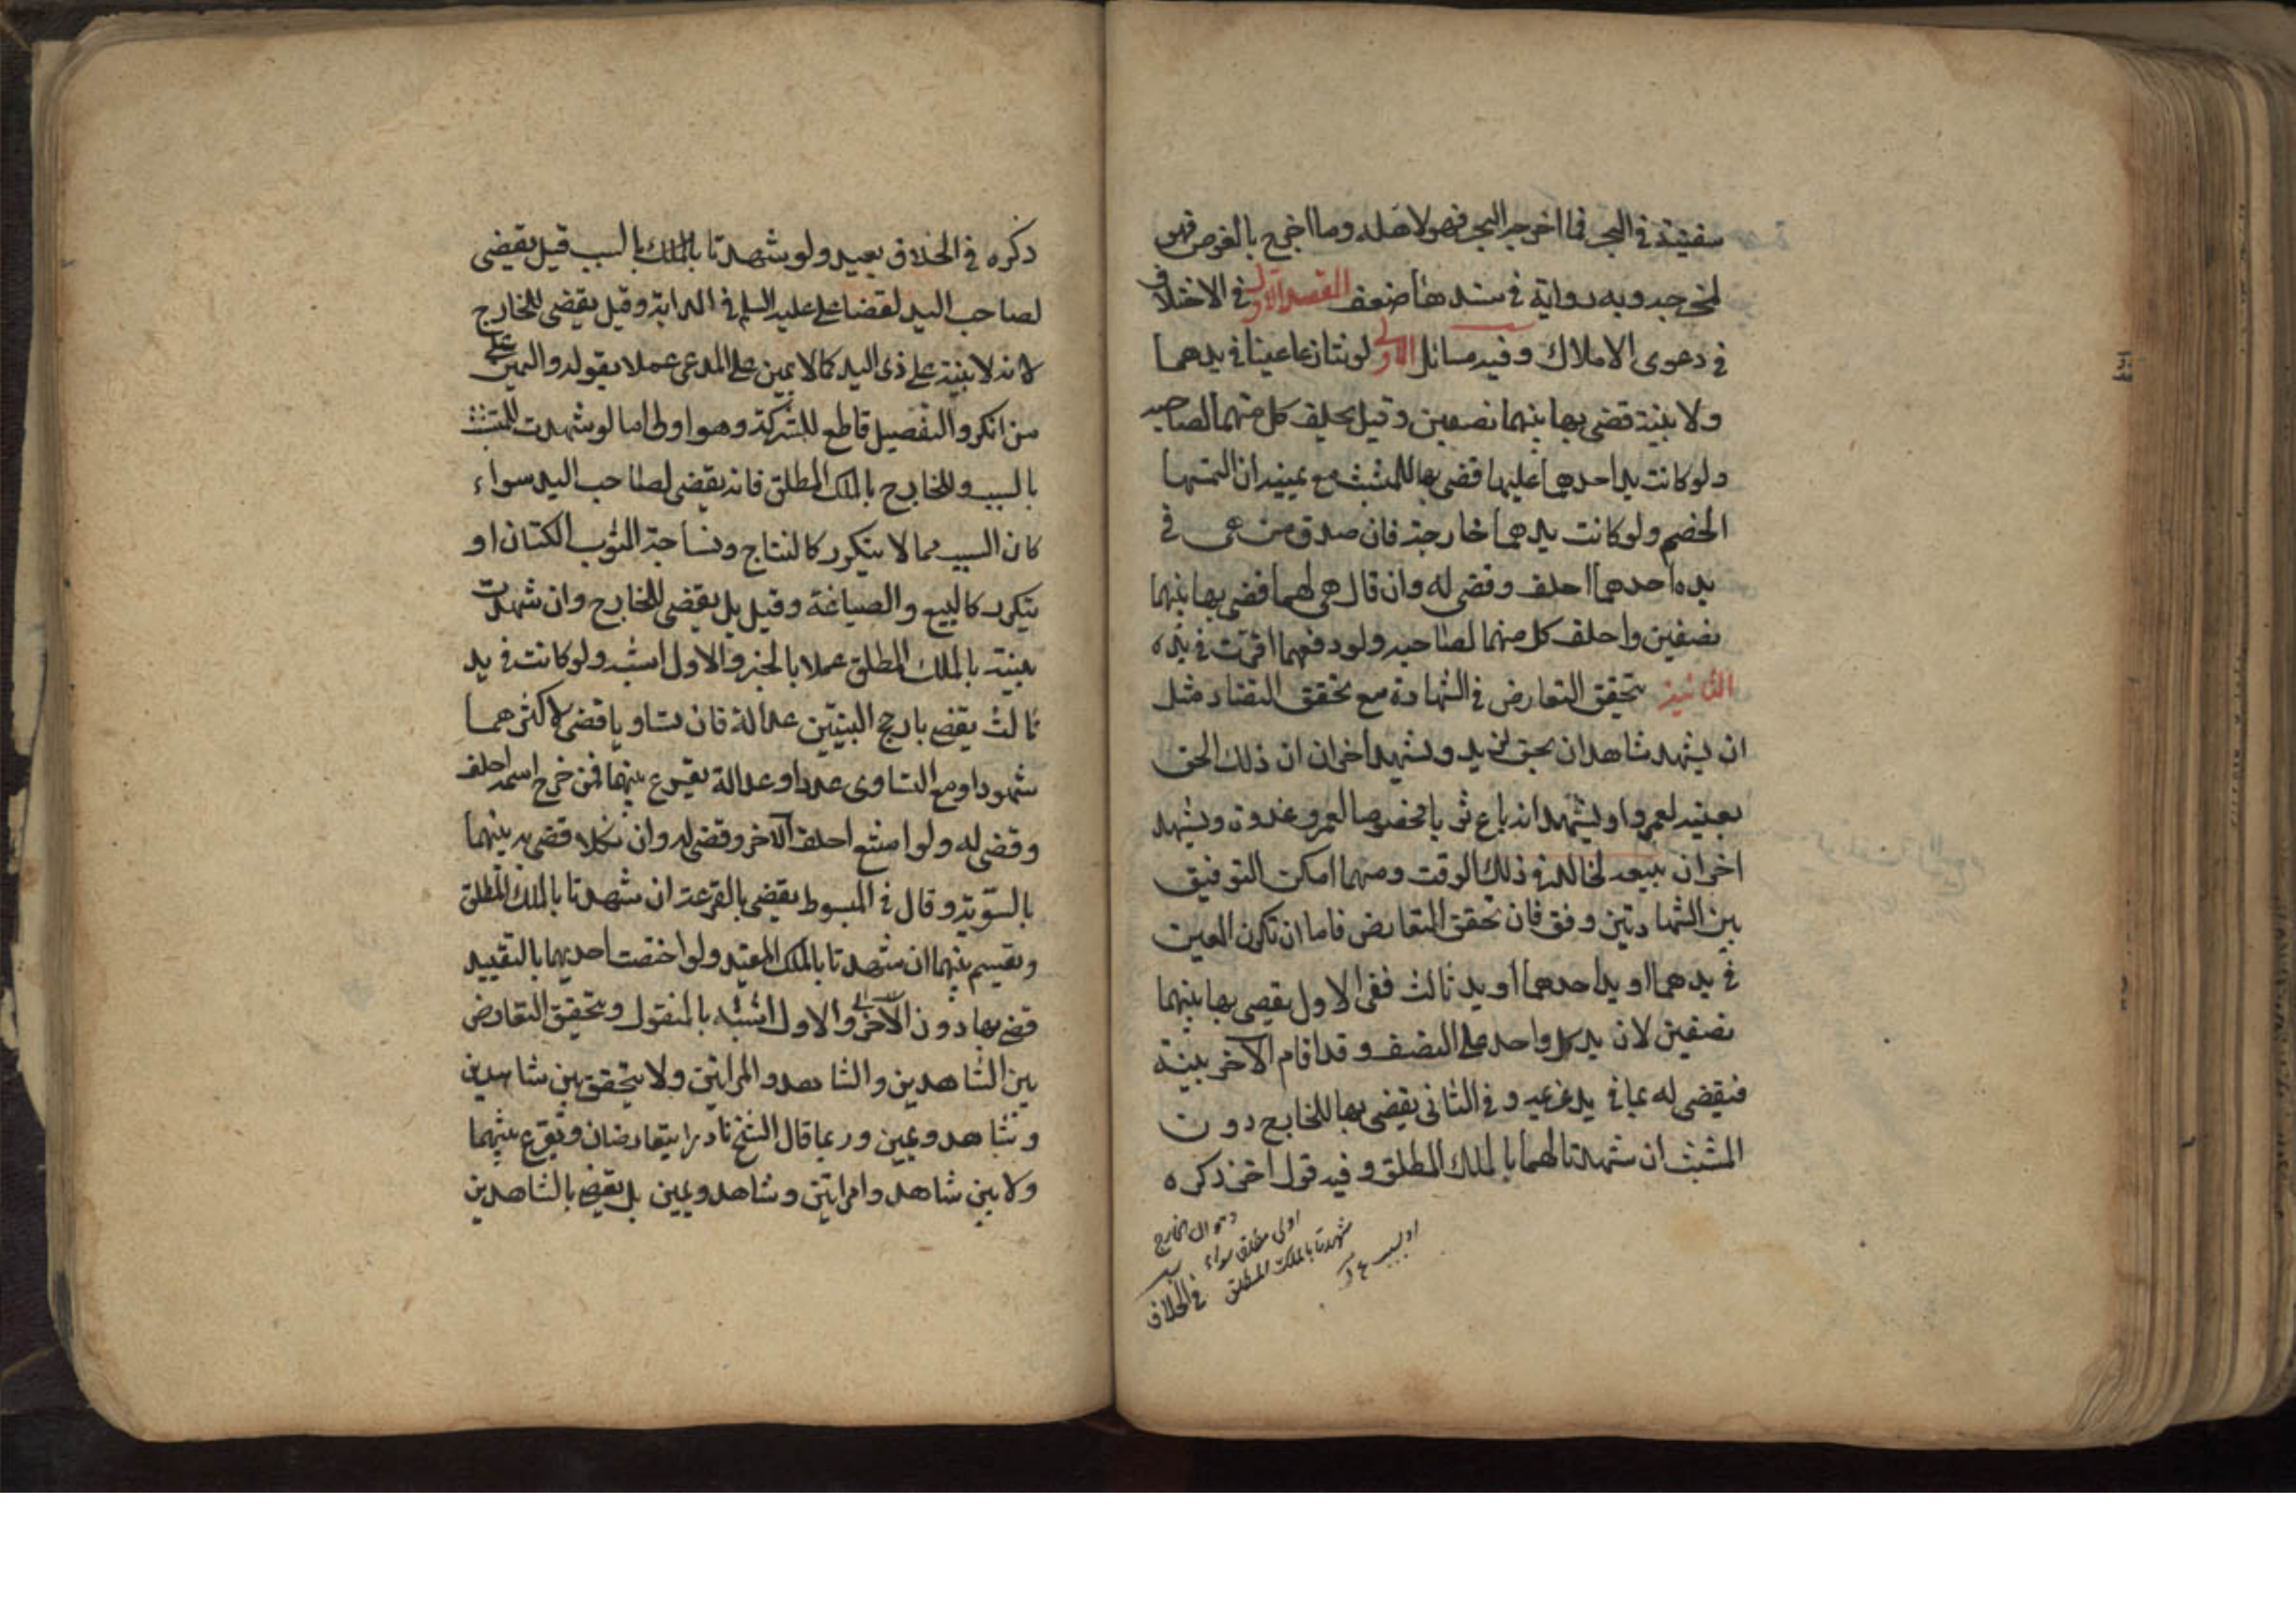 سفينة في البحر فما اخرجه البحر فهو لاهله وما اخرج بالغوص فهو
لمخرجه وبه رواية في سندها ضعف المقصد الاول في الاختلاف
في دعوى الاملاك وفيه مسائل الاولى لو تنازعا عينا في يدهما
ولا بينة قضى بها بينهما نصفين وقيل يحلف كل منهما لصاحبه
ولو كانت يد احدهما عليها قضى بها للمتشبث مع يمينه ان التمسها
الخصم ولو كانت يدهما خارجة فان صدق من هي في
يده احدهما احلف وقضى له وان قال هي لهما قضى بها بينهما
نصفين واحلف كل منهما لصاحبه ولو دفعهما اقرت في يده
الثانية يتحقق التعارض في الشهادة مع تحقق التضاد مثل
ان يشهد شاهدان بحق لزيد ويشهد اخران ان ذلك الحق
بعينه لعمرو او يشهدا انه باع ثوبا مخصوصا لعمرو غدوة ويشهد
اخران ببيعه لخالد في ذلك الوقت ومهما امكن التوفيق
بين الشهادتين وفق فان تحقق التعارض فاما ان تكون العين
في يدهما او يد احدهما او يد ثالث ففي الاول يقضي بها بينهما
نصفين لان يد كل واحد على النصف وقد اقام الآخر بينة
فيقضى له بما في يد غريمه وفي الثاني يقضى بها للخارج دون
المتشبث ان شهدتا لهما بالملك المطلق وفيه قول آخر ذكره
اولى مطلق سواء
شهدتا بالملك المطلق
في الخلاف
ذكره في الخلاف بعيد ولو شهدتا بالملك بالسبب قيل يقضى
لصاحب اليد لقضاء علي عليه السلم في الدابة وقيل يقضى للخارج
لانه لا بينة على ذي اليد كما لا يمين على المدعي عملا بقوله واليمين على
من انكر والتفصيل قاطع للشركة وهو اولى اما لو شهدت للمتشبث
بالسبب وللخارج بالملك المطلق فانه يقضى لصاحب اليد سواء
كان السبب مما لا يتكرر كالنتاج ونساجة الثوب الكتان او
يتكرر كالبيع والصياغة وقيل بل يقضى للخارج وان شهدت
بينته بالملك المطلق عملا بالخبر والاول اشبه ولو كانت في يد
ثالث يقضى بارجح البينتين عدالة فان تساويا قضى لاكثرهما
شهودا ومع التساوي عددا وعدالة يقرع بينهما فمن خرج اسمه احلف
وقضى له ولو امتنع احلف الآخر وقضى له وان نكلا قضى به بينهما
بالسوية وقال في المبسوط يقضى بالقرعة ان شهدتا بالملك المطلق
ويقسم بينهما ان شهدتا بالملك المقيد ولو اختصت احديهما بالتقييد
قضى بها دون الاخرى والاول اشبه بالمنقول ويتحقق التعارض
بين الشاهدين والشاهد والمراتين ولا يتحقق بين شاهدين
وشاهد ويمين وربما قال الشيخ نادرا يتعارضان ويقرع بينهما
ولا بين شاهد وامراتين وشاهد ويمين بل يقضى بالشاهدين